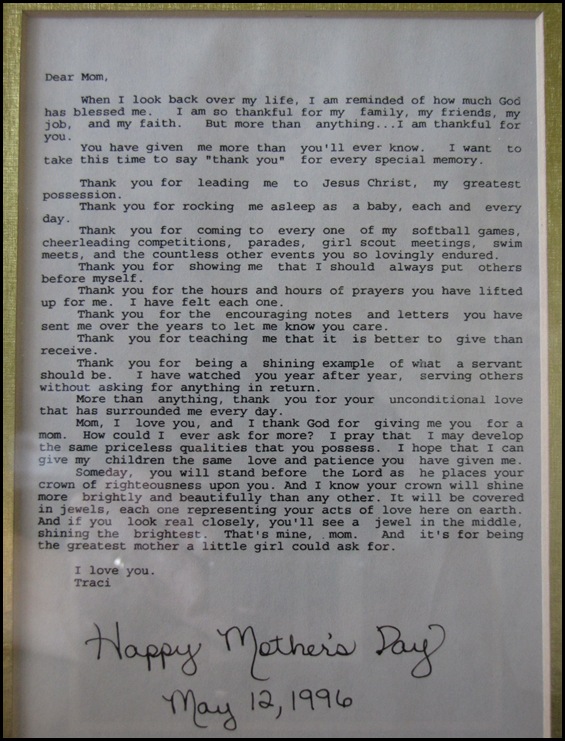 Dear Mom,
When I look back over my life, I am reminded of how much God
has blessed me. I am so thankful for my family, my friends, my
job, and my faith. But more than anything...I am thankful for
you.
You have given me more than you'll ever know. I want to
take this time to say "thank you" for every special memory.
Thank you for leading me to Jesus Christ, my greatest
possession.
Thank you for rocking me asleep as a baby, each and every
day.
Thank you for coming to every one of my softball games,
cheerleading competitions, parades, girl scout meetings, swim
meets, and the countless other events you so lovingly endured.
Thank you for showing me that I should always put others
before myself.
Thank you for the hours and hours of prayers you have lifted
up for me. I have felt each one.
Thank you for the encouraging notes and letters you have
sent me over the years to let me know you care.
Thank you for teaching me that it is better to give than
receive.
Thank you for being a shining example of what a servant
should be. I have watched you year after year, serving others
without asking for anything in return.
More than anything, thank you for your unconditional love
that has surrounded me every day.
Mom, I love you, and I thank God for giving me you for a
mom. How could I ever ask for more? I pray that I may develop
the same priceless qualities that you possess. I hope that I can
give my children the same love and patience you have given me.
Someday, you will stand before the Lord as he places your
crown of righteousness upon you. And I know your crown will shine
more brightly and beautifully than any other. It will be covered
in jewels, each one representing your acts of love here on earth.
And if you look real closely, you'll see a jewel in the middle,
shining the brightest. That's mine, mom. And it's for being
the greatest mother a little girl could ask for.
I love you.
Traci
Happy Mother's Day
May 12, 1996